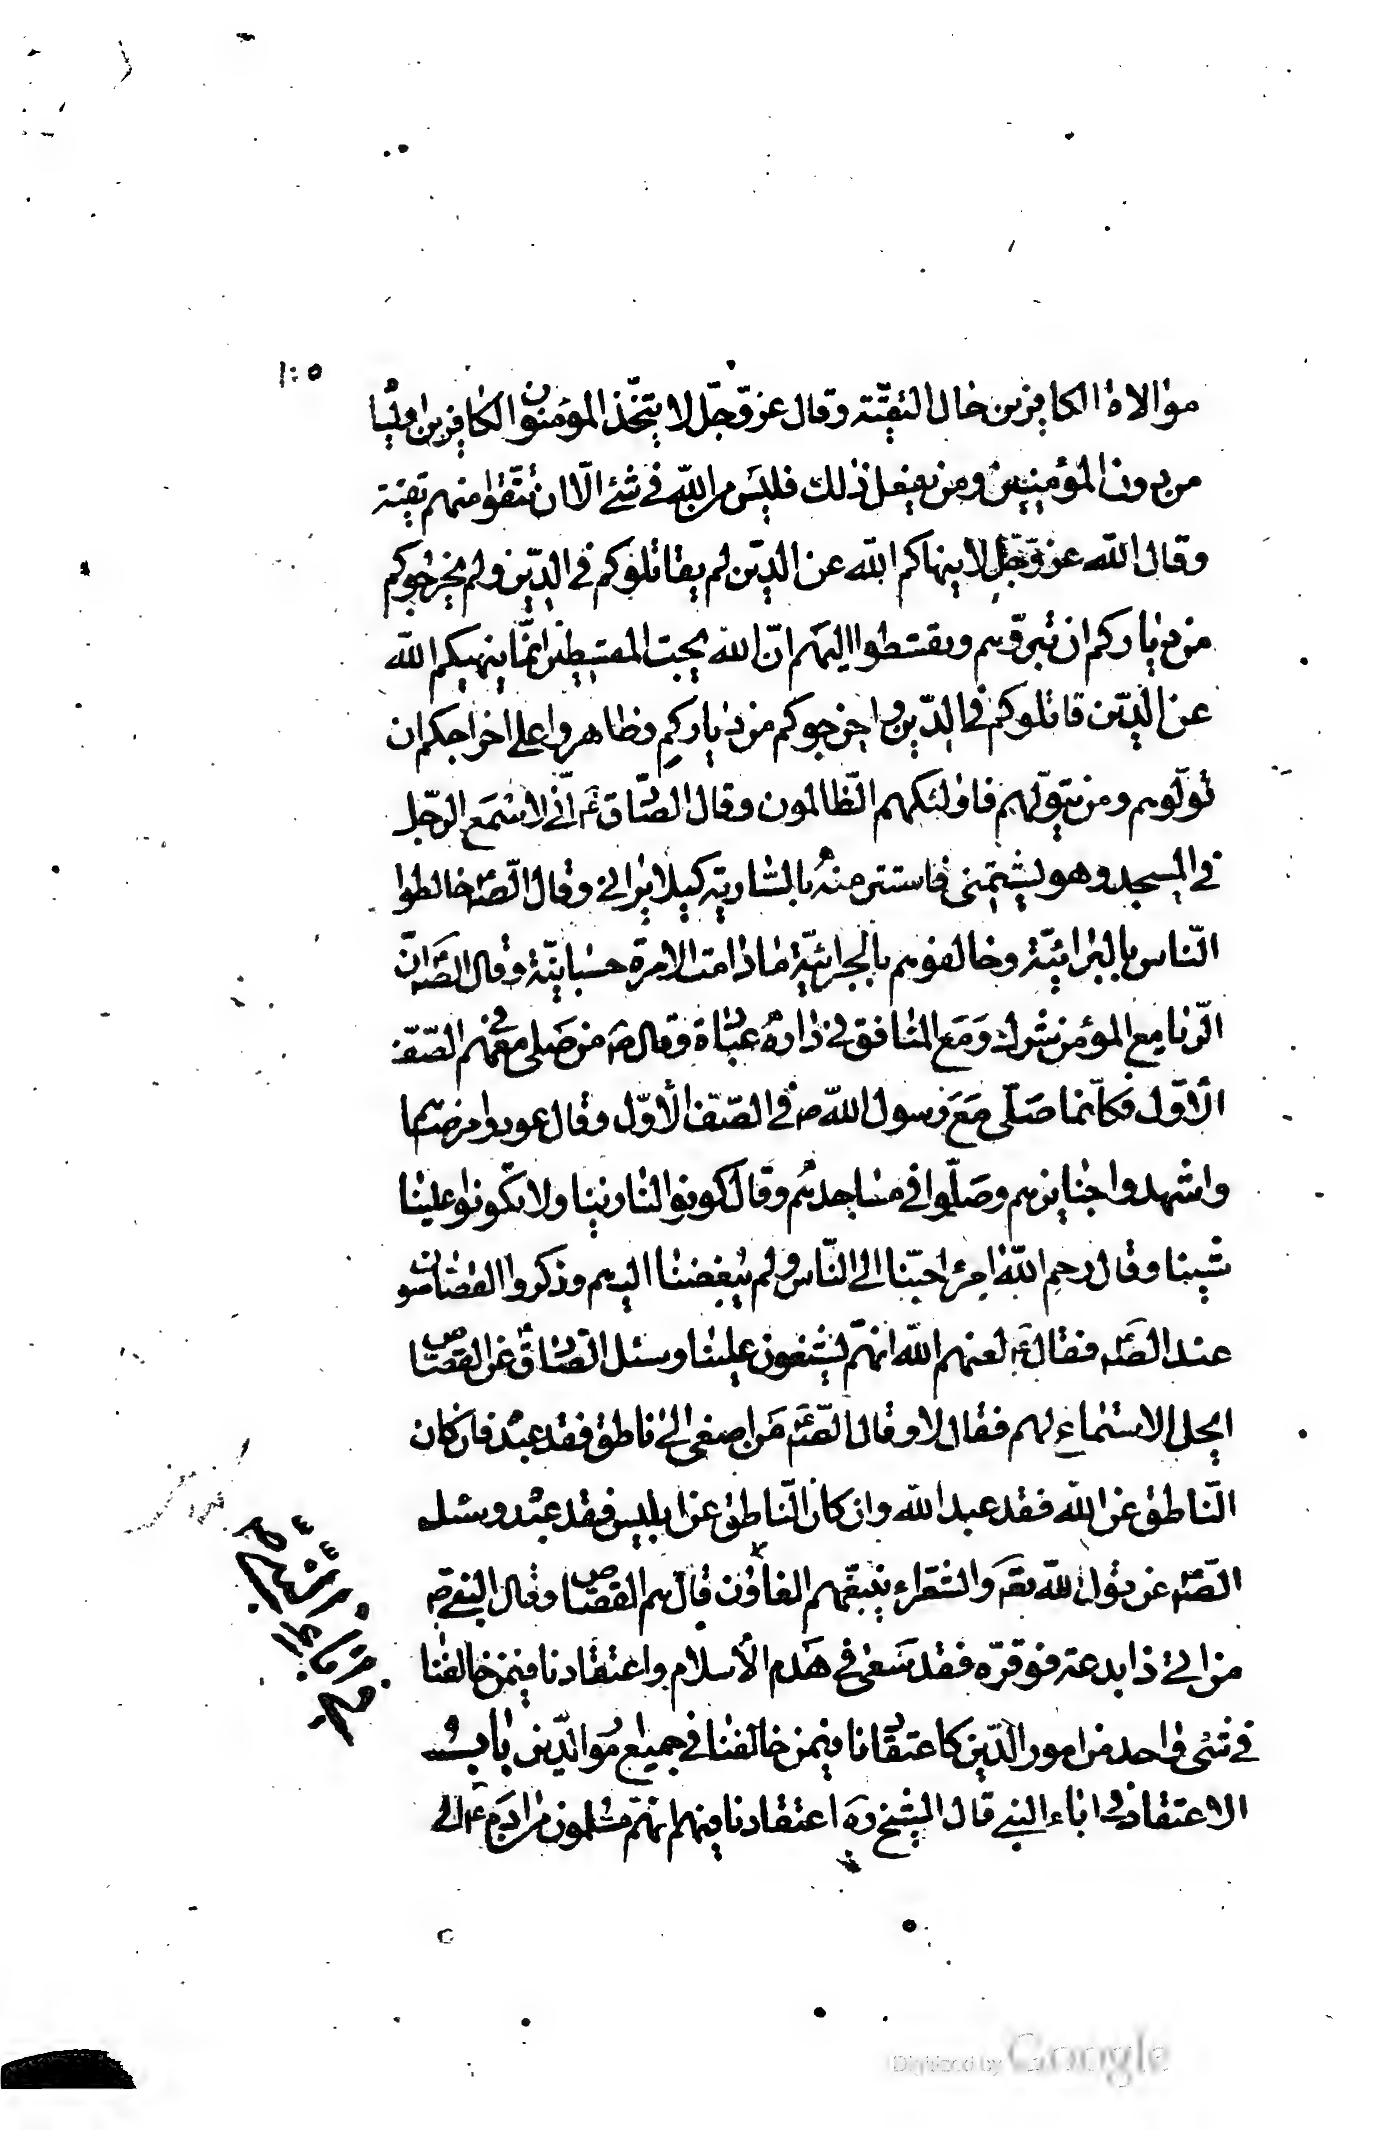 ١٠٥
موالاة الكافرين حال التقيّة وقال عزّ وجلّ لا يتّخذ المؤمنون الكافرين اولياء
من دون المؤمنين ومن يفعل ذلك فليس من اللّه في شئ الّا ان تتّقوا منهم تقية
وقال اللّه عزّ وجلّ لا ينهاكم اللّه عن الذين لم يقاتلوكم في الدّين ولم يخرجوكم
من دياركم ان تبرّوهم وتقسطوا اليهم انّ اللّه يحبّ المقسطين انّما ينهيكم اللّه
عن الذين قاتلوكم في الدّين واخرجوكم من دياركم وظاهروا على اخراجكم ان
تولّوهم ومن يتولّهم فاولئكهم الظّالمون وقال الصّادق ع انّي لاسمع الرجل
في المسجد وهو يشتمني فاستتر منه بالسّارية كيلا يراني وقال الصّ خالطوا
النّاس بالبرانيّة وخالفوهم بالجوانيّة ما دامت الامرة حسبانيّة وقال الصّ انّ
الرّيا مع المؤمن شرك ومع المنافق في داره عبادة وقال ع من صلى معهم في الصّفّ
الأوّل فكانّما صلّى مع رسول اللّه ص في الصّفّ الأوّل وقال عودوا مرضيهم
واشهدوا جنايزهم وصلّوا في مساجدهم وقال كونوا لنا زينا ولا تكونوا علينا
شينا وقال رحم اللّه امرء احبّنا الى النّاس ولم يبغضنا اليهم وذكروا القصّاصون
عند الصّ فقال ع لعنهم اللّه انهم يشنعون علينا وسئل الصّادق ع عن القصّاص
ايحل الاستماع لهم فقال لا وقال الصّ ع من اصغى الى ناطق فقد عبده فان كان
النّاطق عن اللّه فقد عبد اللّه وان كان النّاطق عن ابليس فقد عبده وسئل
الصّ عن قول اللّه تعه والشعراء يتبعهم الغاون قال هم القصّاص وقال النبي ص
من اتى ذا بدعة فوقّره فقد سعى في هدم الأسلام واعتقادنا فيمن خالفنا
في شئ واحد من امور الدّين كاعتقادنا فيمن خالفنا في جميع امور الدّين باب
الاعتقاد في اباء النبي قال الشيخ ره اعتقادنا فيهم انهم مسلمون من ادم ع الى
في اباء النبي ص